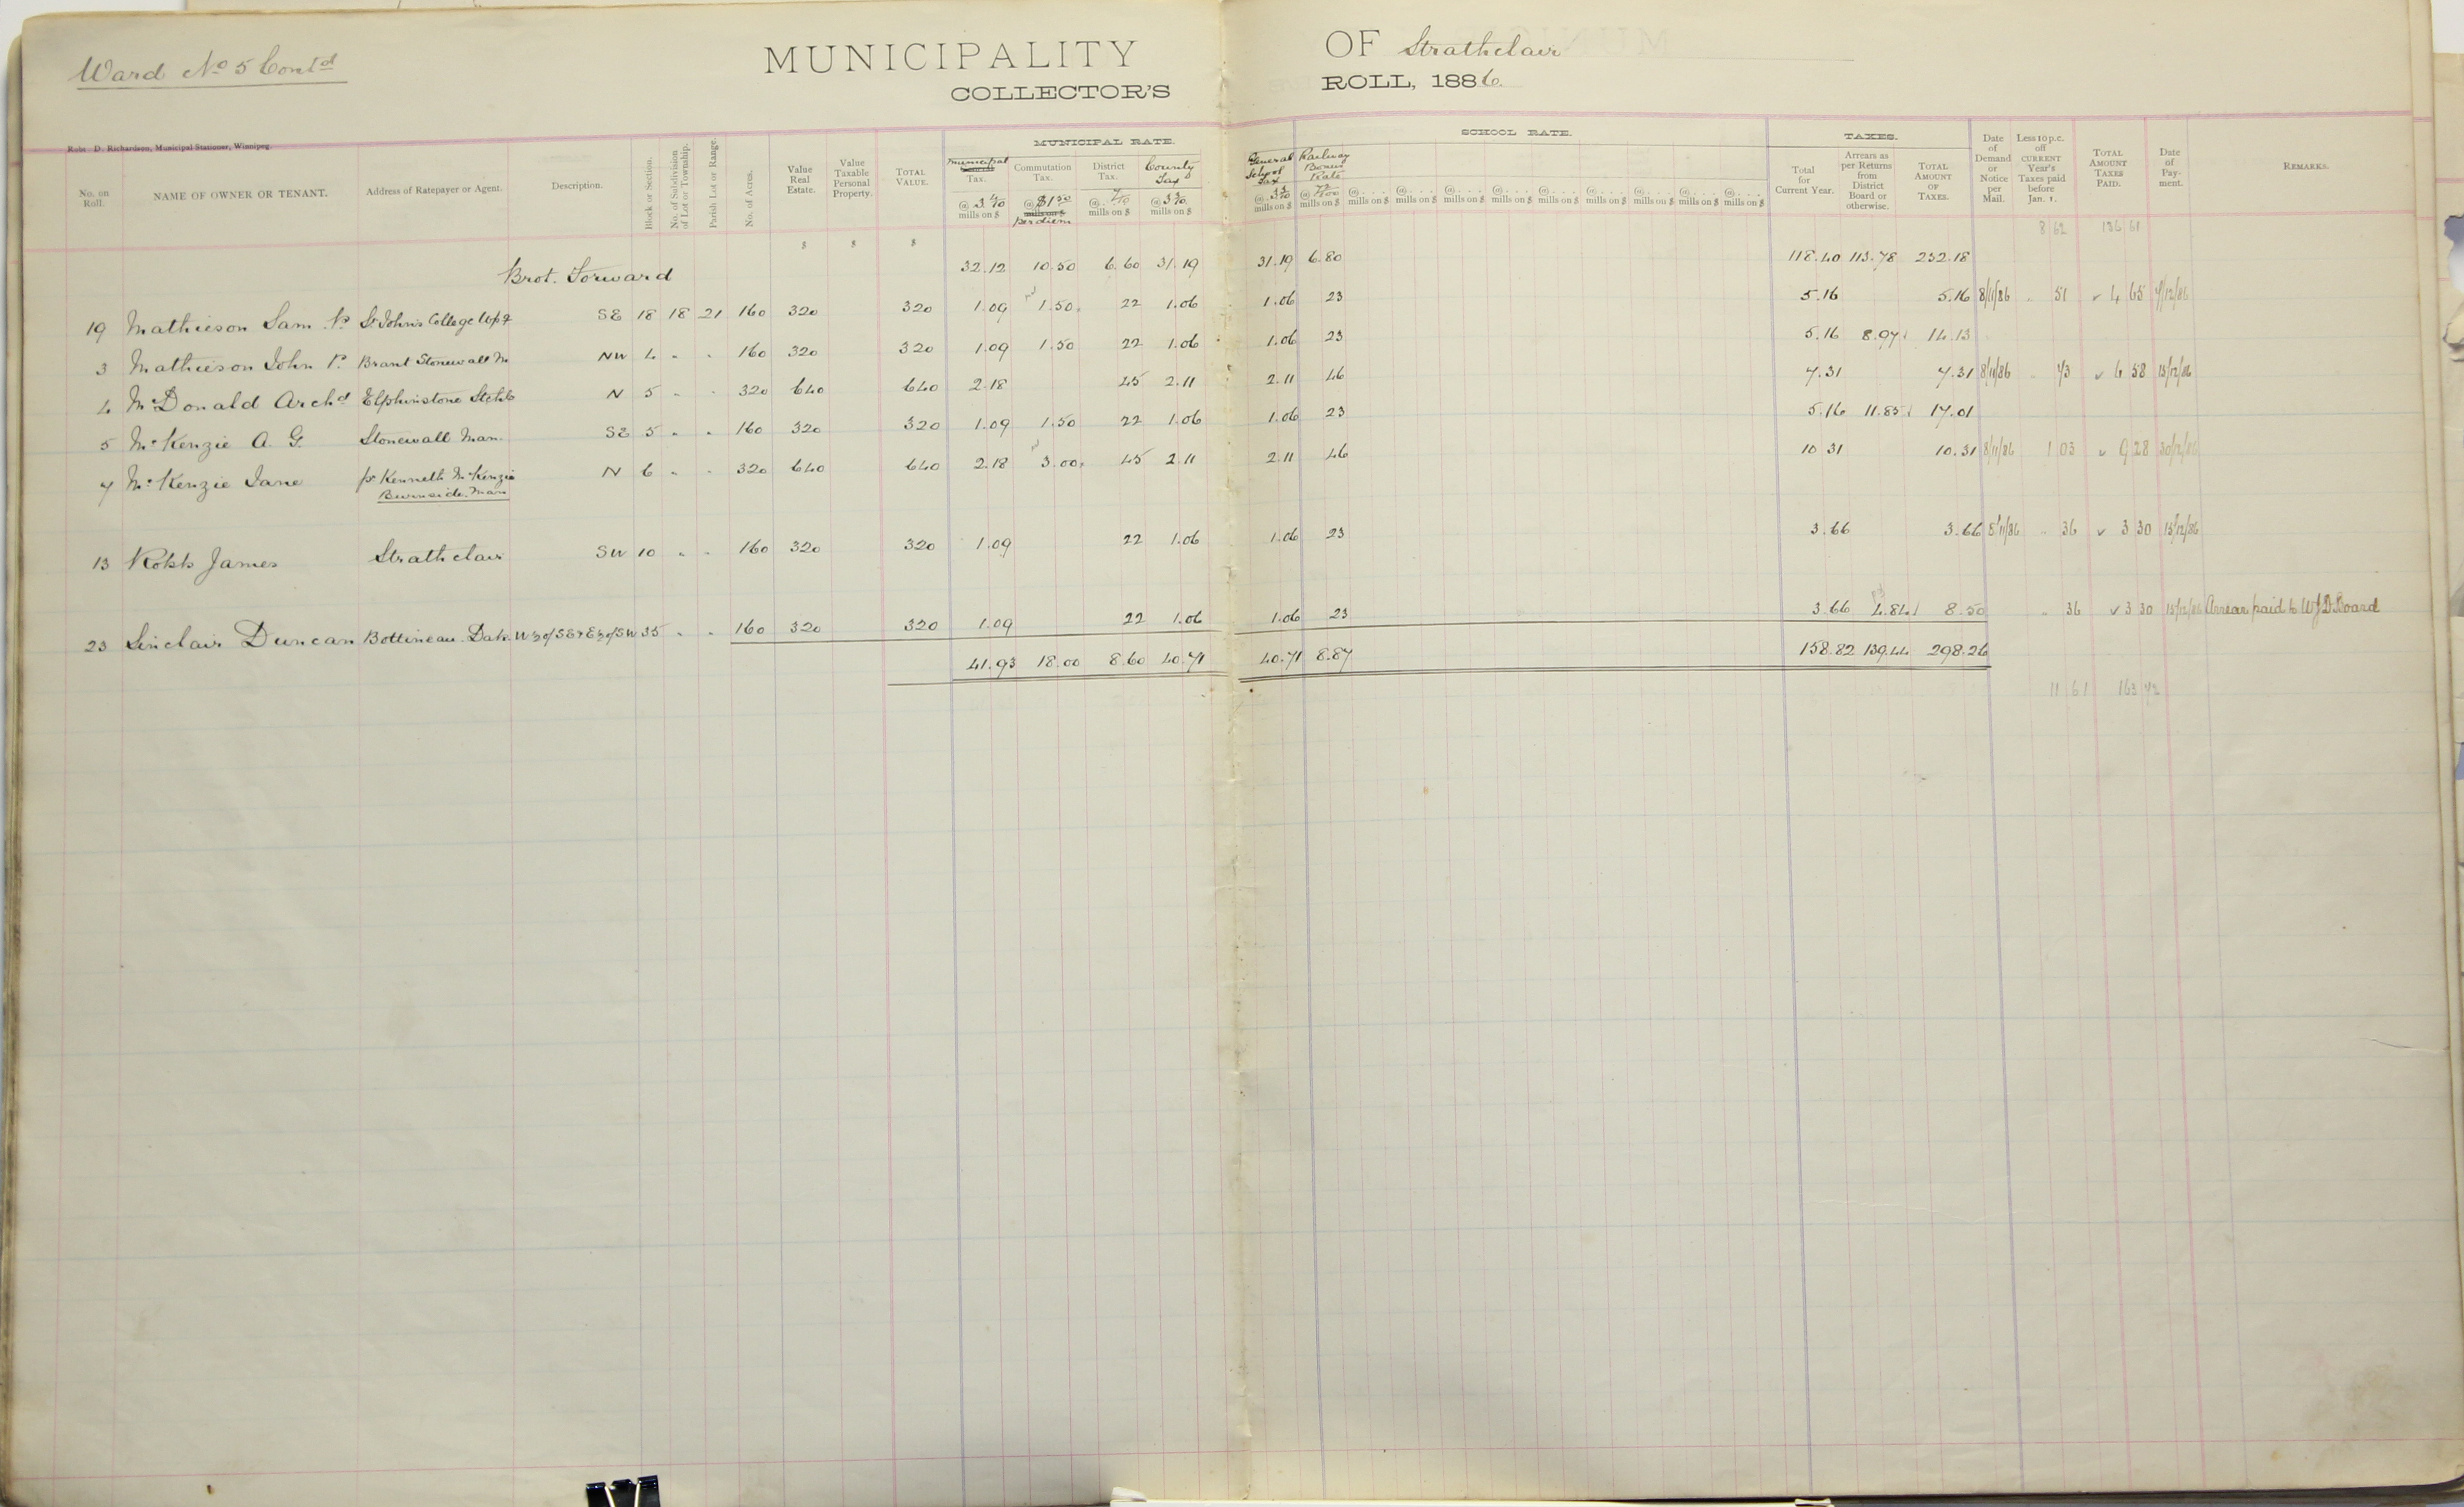 Ward No 5 Contd
MUNICIPALITY OF Strathclair
COLLECTOR'S ROLL, 1886.
Robt. D. Richardson, Municipal Stationer, Winnipeg.
MUNICIPAL RATE. SCHOOL RATE. TAXES.
No. on Roll. NAME OF OWNER OR TENANT. Address of Ratepayer or Agent. Description. Block or Section. No. of Subdivision of Lot or Township. Parish Lot or Range. No. of Acres. Value Real Estate. Value Taxable Personal Property. TOTAL VALUE. Municipal Tax. @ 3 4/10 mills on $ Commutation Tax. @ $1 50 mills on $ per diem District Tax. @ 7/10 mills on $ County Tax @ 3 3/10 mills on $ General School Tax @ 3 3/10 mills on $ Railway Bonus Rate @ 72/100 mills on $ @ . . . . mills on $ @ . . . . mills on $ @ . . . . mills on $ @ . . . . mills on $ @ . . . . mills on $ @ . . . . mills on $ @ . . . . mills on $ @ . . . . mills on $ @ . . . . mills on $ Total for Current Year. Arrears as per Returns from District Board or otherwise. TOTAL AMOUNT OF TAXES. Date of Demand or Notice per Mail. Less 10 p.c. off CURRENT Year's Taxes paid before Jan. 1. TOTAL AMOUNT TAXES PAID. Date of Payment. REMARKS.
$ $ $ 8 62 136 61
Brot. Forward 32.12 10.50 6.60 31.19 31.19 6.80 118.40 113.78 232.18
19 Mathieson Sam. P. St Johns College Wpg SE 18 18 21 160 320 320 1.09 1.50 22 1.06 1.06 23 5.16 5.16 8/11/86 " 51 ✓ 4 65 7/12/86
3 Mathieson John P. Brant Stonewall M NW 4 " " 160 320 320 1.09 1.50 22 1.06 1.06 23 5.16 8.97 14.13
4 McDonald Archd Elphinstone N 5 " " 320 640 640 2.18 45 2.11 2.11 46 7.31 7.31 8/11/86 " 73 ✓ 6 58 15/12/86
5 McKenzie A. G. Stonewall Man. SE 5 " " 160 320 320 1.09 1.50 22 1.06 1.06 23 5.16 11.85 17.01
7 McKenzie Jane pr Kenneth McKenzie N 6 " " 320 640 640 2.18 3.00 45 2.11 2.11 46 10 31 10.31 8/11/86 1 03 ✓ 9 28 30/12/86
Burnside. Man
13 Robb James Strathclair SW 10 " " 160 320 320 1.09 22 1.06 1.06 23 3.66 3.66 8/11/86 " 36 ✓ 3 30 15/12/86
23 Sinclair Duncan Bottineau. Dak. W½ of SE & E½ of SW 35 " " 160 320 320 1.09 22 1.06 1.06 23 3.66 4.84 8.50 " 36 ✓ 3 30 15/12/86 Arrear paid to W J D Board
41.93 18.00 8.60 40.71 40.71 8.87 158.82 139.44 298.26
11 61 163 72